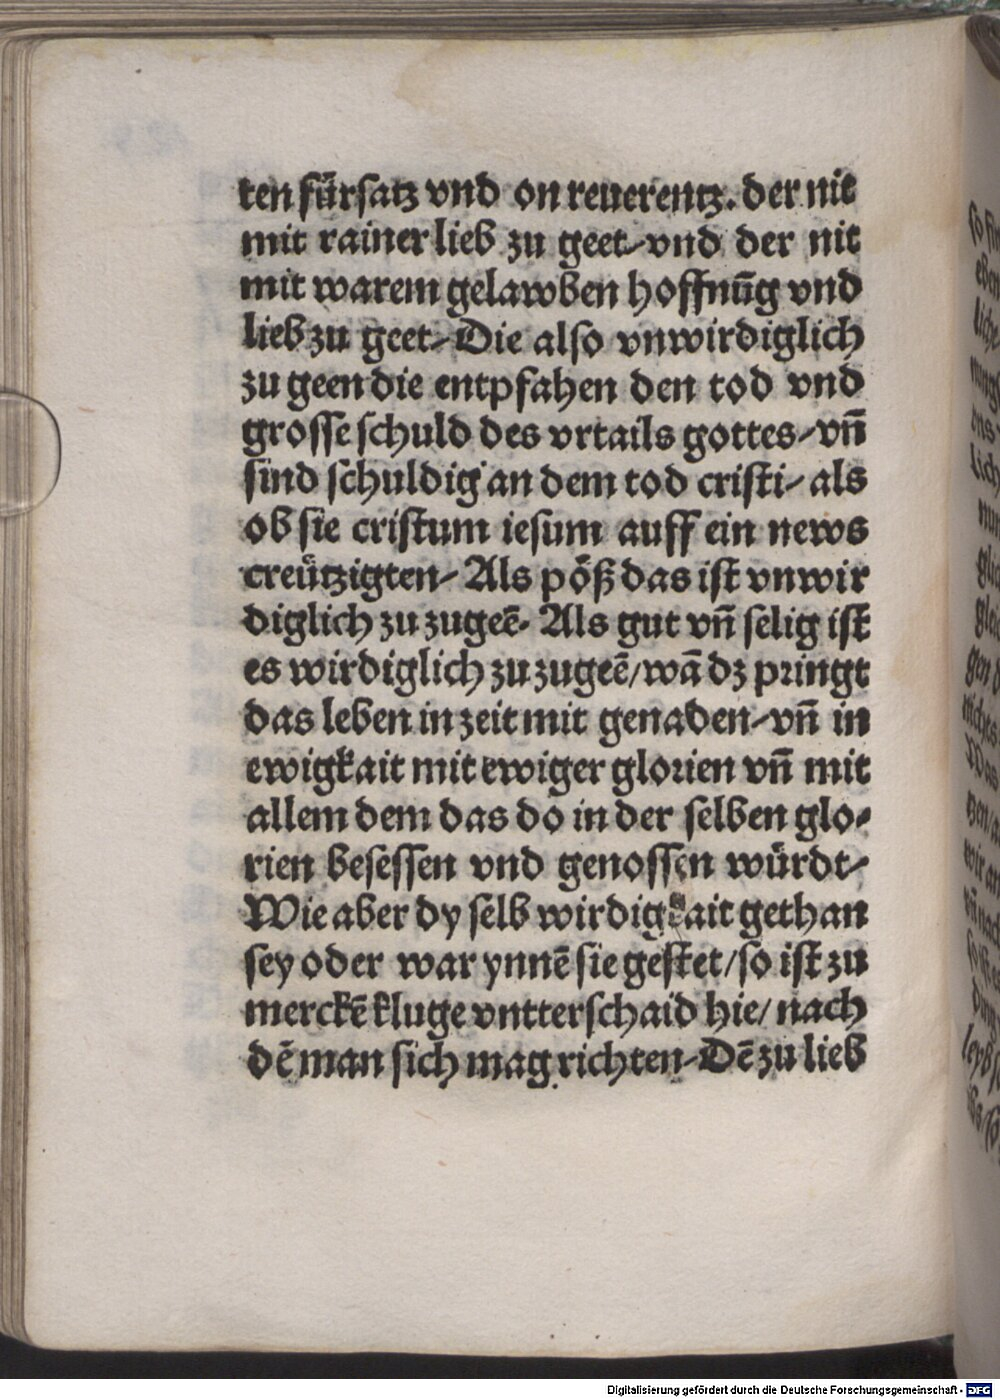 ten fürſatz vnd on reuerentz. der nit
mit rainer lieb zu geet⸗vnd der nit
mit warem gelawben hoffnūg vnd
lieb zu geet⸗Die alſo vnwirdiglich
zu geen die entpfahen den tod vnd
groſſe ſchuld des vrtails gottes⸗vn̄
ſind ſchuldig an dem tod criſti⸗als
ob ſie criſtum ieſum auff ein news
creützigten⸗Als pöß das iſt vnwir
diglich zu zugeē. Als gut vn̄ ſelig iſt
es wirdiglich zu zugeē/wā dz pringt
das leben in zeit mit genaden⸗vn̄ in
ewigkait mit ewiger glorien vn̄ mit
allem dem das do in der ſelben glo⸗
rien beſeſſen vnd genoſſen würdt⸗
Wie aber dy ſelb wirdigkait gethan
ſey oder war ynnē ſie geſtet/ſo iſt zu
merckē kluge vntterſchaid hie/nach
dē man ſich mag richten⸗Dē zu lieb
Digitalisierung gefördert durch die Deutsche Forschungsgemeinschaft - DFG